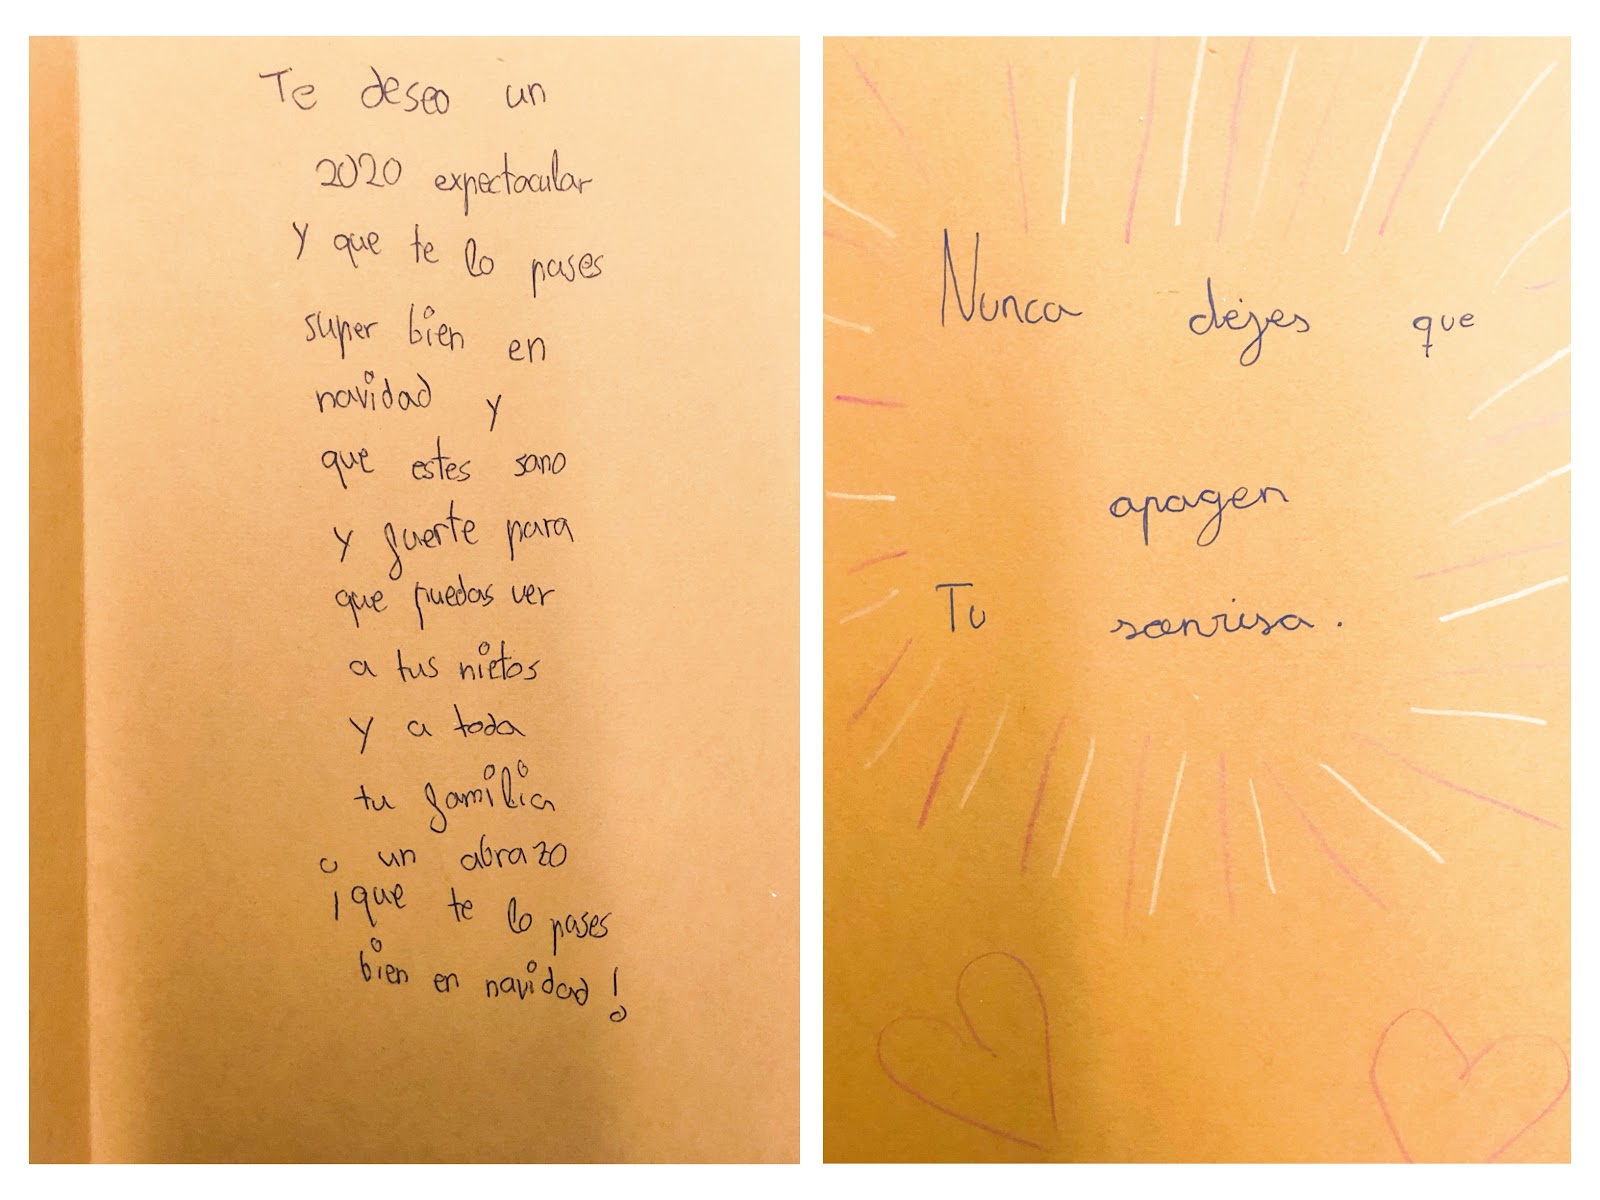 Te deseo un
2020 expectacular
y que te lo pases
super bien en
navidad y
que estes sano
y fuerte para
que puedas ver
a tus nietos
y a toda
tu familia
un abrazo
¡que te lo pases
bien en navidad!
Nunca dejes que
apagen
Tu sonrisa.